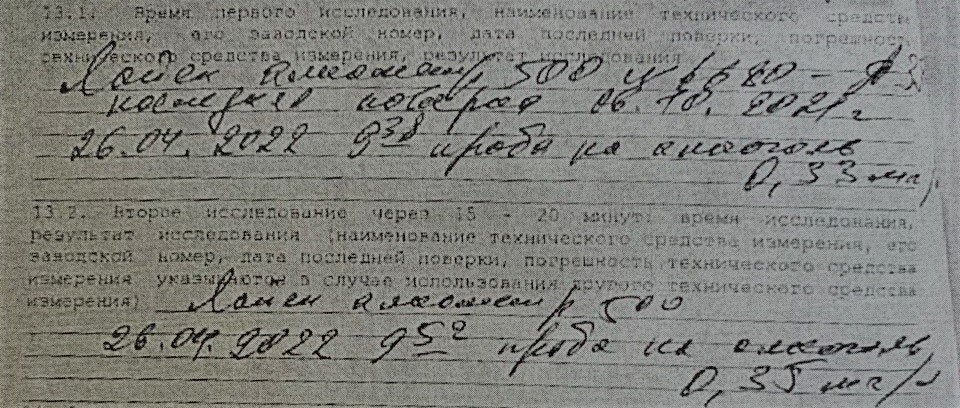 13.1. Время первого исследования, наименование технического средства
измерения, его заводской номер, дата последней поверки, погрешность
технического средства измерения, результат исследования
500
06.10.2021 г
26.04.2022 9 38 проба на алкоголь
0,33 мг/
13.2. Второе исследование через 15 - 20 минут: время исследования,
результат исследования (наименование технического средства измерения, его
заводской номер, дата последней поверки, погрешность технического средства
измерения указываются в случае использования другого технического средства
измерения) 500
26.04.2022 9 52 проба на алкоголь
0,35 мг/л